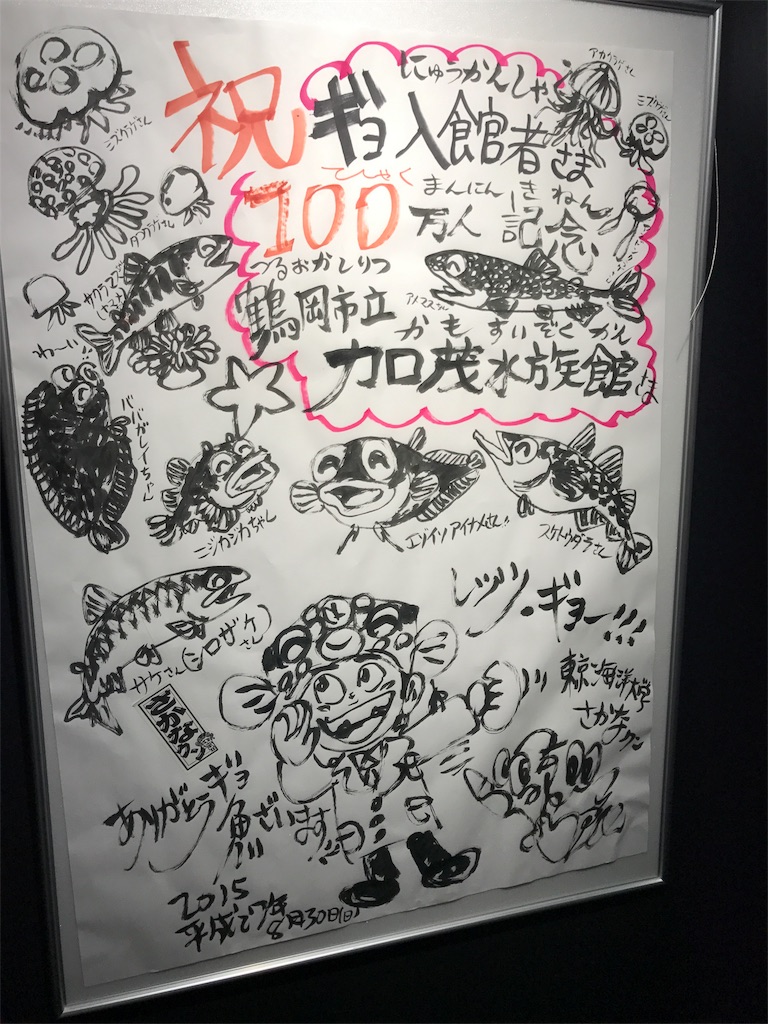 祝
にゅうかんしゃ
ギョ入館者さま
まんにん きねん
100万人 記念
つるおかしりつ
鶴岡市立
かもすいぞくかん
加茂水族館さま
アカクラゲさん
ミズクラゲさん
ミズクラゲさん
タコクラゲさん
アメマスさん
わーい!!
ババガレイちゃん
ニジカジカちゃん
エゾイソアイナメさん!!
スケトウダラさん
サケさん(シロザケさん)
レッツ・ギョー!!!
東京海洋大学
さかなクン
さかなクン
ありがとうギョ魚ざいます!!
2015
平成27年
8月30日(日)